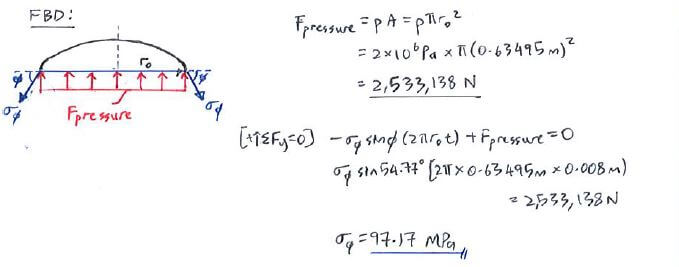 FBD:
r₀
ϕ ϕ
σϕ σϕ
Fpressure
Fpressure = pA = pπr₀²
= 2×10⁶ Pa × π(0.63495 m)²
= 2,533,138 N
[+↑ΣFy=0] −σϕ sinϕ (2πr₀t) + Fpressure = 0
σϕ sin 54.77° [2π × 0.63495 m × 0.008 m]
= 2,533,138 N
σϕ = 97.17 MPa